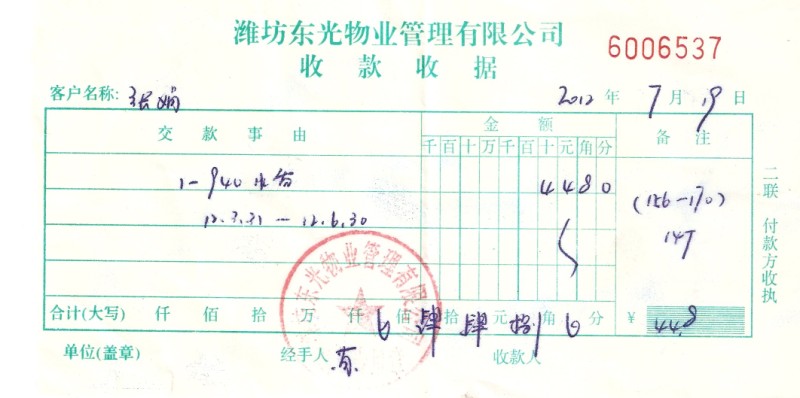 潍坊东光物业管理有限公司
收款收据
6006537
客户名称: 张娟 2012年7月19日
交款事由 金额 备注
千百十万千百十元角分
1-940水费 4480 (156-170)
12.3.31-12.6.30 14T
合计(大写) 仟 佰 拾 万 仟 佰 肆拾 肆元 捌角 分 ¥ 44.8
单位(盖章) 经手人 收款人
二联 付款方收执
东光物业管理有限